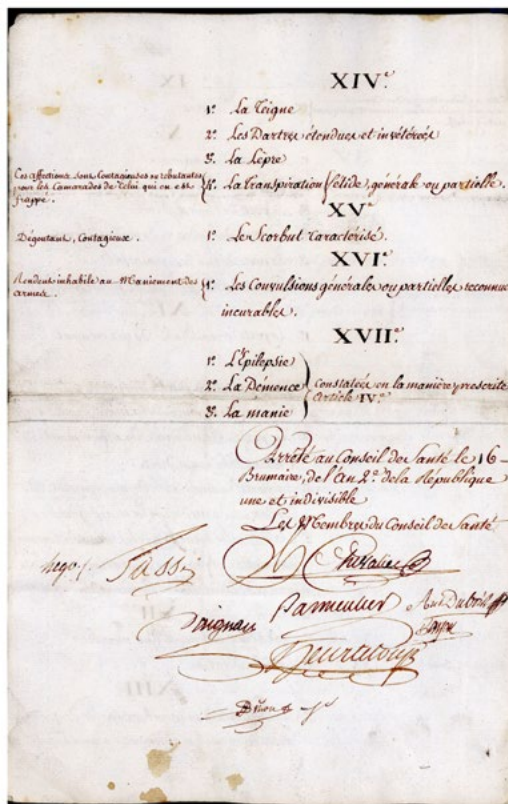 XIV.e
1.° La Teigne
2.° Les Dartres étendues et invétérées
3.° La Lèpre
Ces affections sont Contagieuses ou rebutantes
pour les Camarades de Celui qui en est
frappé.
4.° La Transpiration fétide, générale ou partielle.
XV.e
Dégoutant, Contagieux.
1.° Le Scorbut Caractérisé.
XVI.e
Rendent inhabile au Maniement des
armes.
1.° Les Convulsions générales ou partielles reconnues
incurables.
XVII.e
1.° L'Épilepsie
2.° La Démence
3.° La manie
Constatées en la manière prescrite
Article IV.e
Arrêté au Conseil de Santé le 16
Brumaire, de l'an 2.e de la République
une et indivisible
Les Membres du Conseil de Santé
hego
Chevalier
Parmentier
Ant Dubois
Daignan
Heurteloup